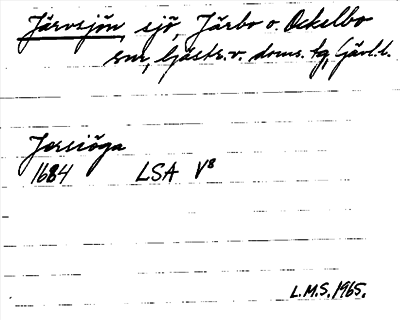 Järvsjön, sjö, Järbo o. Ockelbo
snr, Gästr.v. doms. tg, Gävl.l.
Jersiöga
1684 LSA V8
L.M.S. 1965.